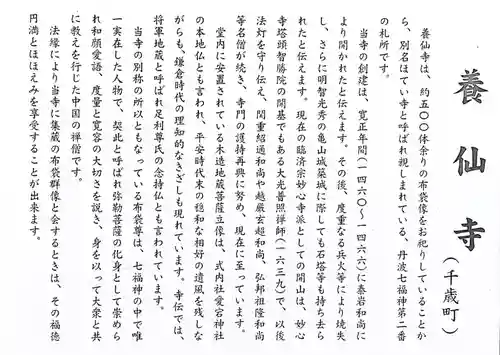 養仙寺(千歳町)
養仙寺は、約五〇〇体余りの布袋像をお祀りしていることか
ら、別名ほてい寺と呼ばれ親しまれている、丹波七福神第二番
の札所です。
当寺の創建は、寛正年間(一四六〇~一四六六)に泰岩和尚に
より開かれたと伝えます。その後、度重なる兵火等により焼失
し、さらに明智光秀の亀山城築城に際しても石塔等も持ち去ら
れたと伝えます。現在の臨済宗妙心寺派としての開山は、妙心
寺塔頭智勝院の開基でもある大光普照禅師(一六三九)で、以後
法灯を守り伝え、関重紹通和尚や越厳玄超和尚、弘邦祖隆和尚
等名僧が続き、寺門の護持再興に努め、現在に至っています。
堂内に安置されている木造地蔵菩薩立像は、式内社愛宕神社
の本地仏とも言われ、平安時代末の穏和な相好の遺風を残しな
がらも、鎌倉時代の理知的なきざしも現れています。寺伝では、
将軍地蔵と呼ばれ足利尊氏の念持仏とも言われています。
当寺の別称の所以ともなっている布袋尊は、七福神の中で唯
一実在した人物で、契此と呼ばれ弥勒菩薩の化身として崇めら
れ和顔愛語、度量と寛容の大切さを説き、身を以って大衆と共
に教えを行じた中国の禅僧です。
法縁により当寺に集蔵の布袋群像と会するときは、その福徳
円満とほほえみを享受することが出来ます。